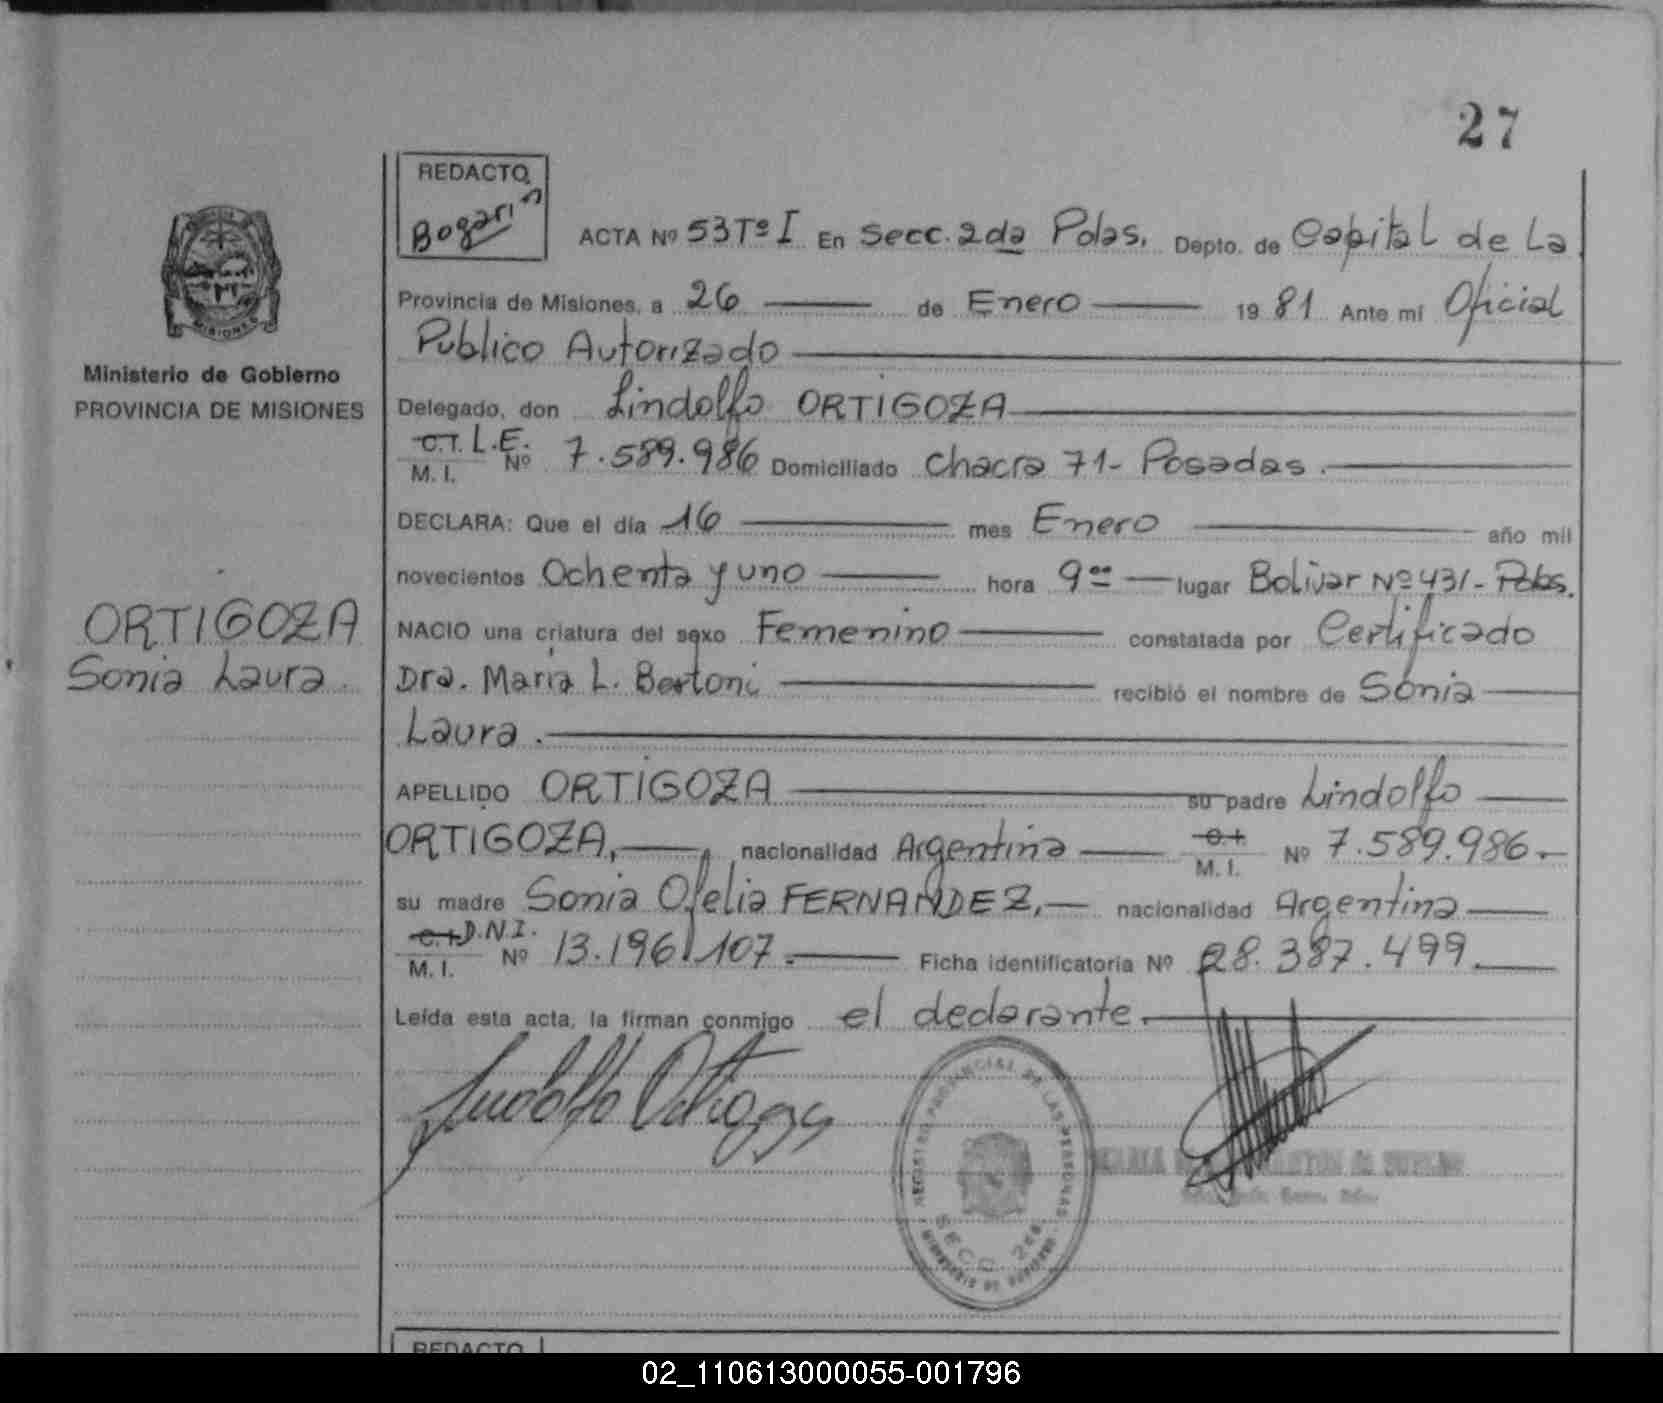 27
REDACTO
Bogarin
ACTA Nº 53Tº I En Secc. 2da Pdas. Depto. de Capital de La
Provincia de Misiones, a 26 de Enero 1981 Ante mi Oficial
Publico Autorizado
MISIONES
Ministerio de Gobierno
PROVINCIA DE MISIONES
Delegado, don Lindolfo ORTIGOZA
C.I. L.E.
M. I. Nº 7.589.986 Domiciliado Chacra 71- Posadas.
DECLARA: Que el día 16 mes Enero año mil
novecientos Ochenta y uno hora 9 lugar Bolivar Nº 431- Pdas.
ORTIGOZA
Sonia Laura
NACIO una criatura del sexo Femenino constatada por Certificado
Dra. Maria L. Bertoni recibió el nombre de Sonia
Laura.
APELLIDO ORTIGOZA su padre Lindolfo
ORTIGOZA, nacionalidad Argentina C.I. M. I. Nº 7.589.986.
su madre Sonia Ofelia FERNANDEZ, nacionalidad Argentina
C.I. D.N.I.
M. I. Nº 13.196.107. Ficha identificatoria Nº 28.387.499.
Leída esta acta, la firman conmigo el declarante.
Lindolfo Ortigoza
REGISTRO PROVINCIAL DE LAS PERSONAS
SECC. 2da
REDACTO
02_110613000055-001796